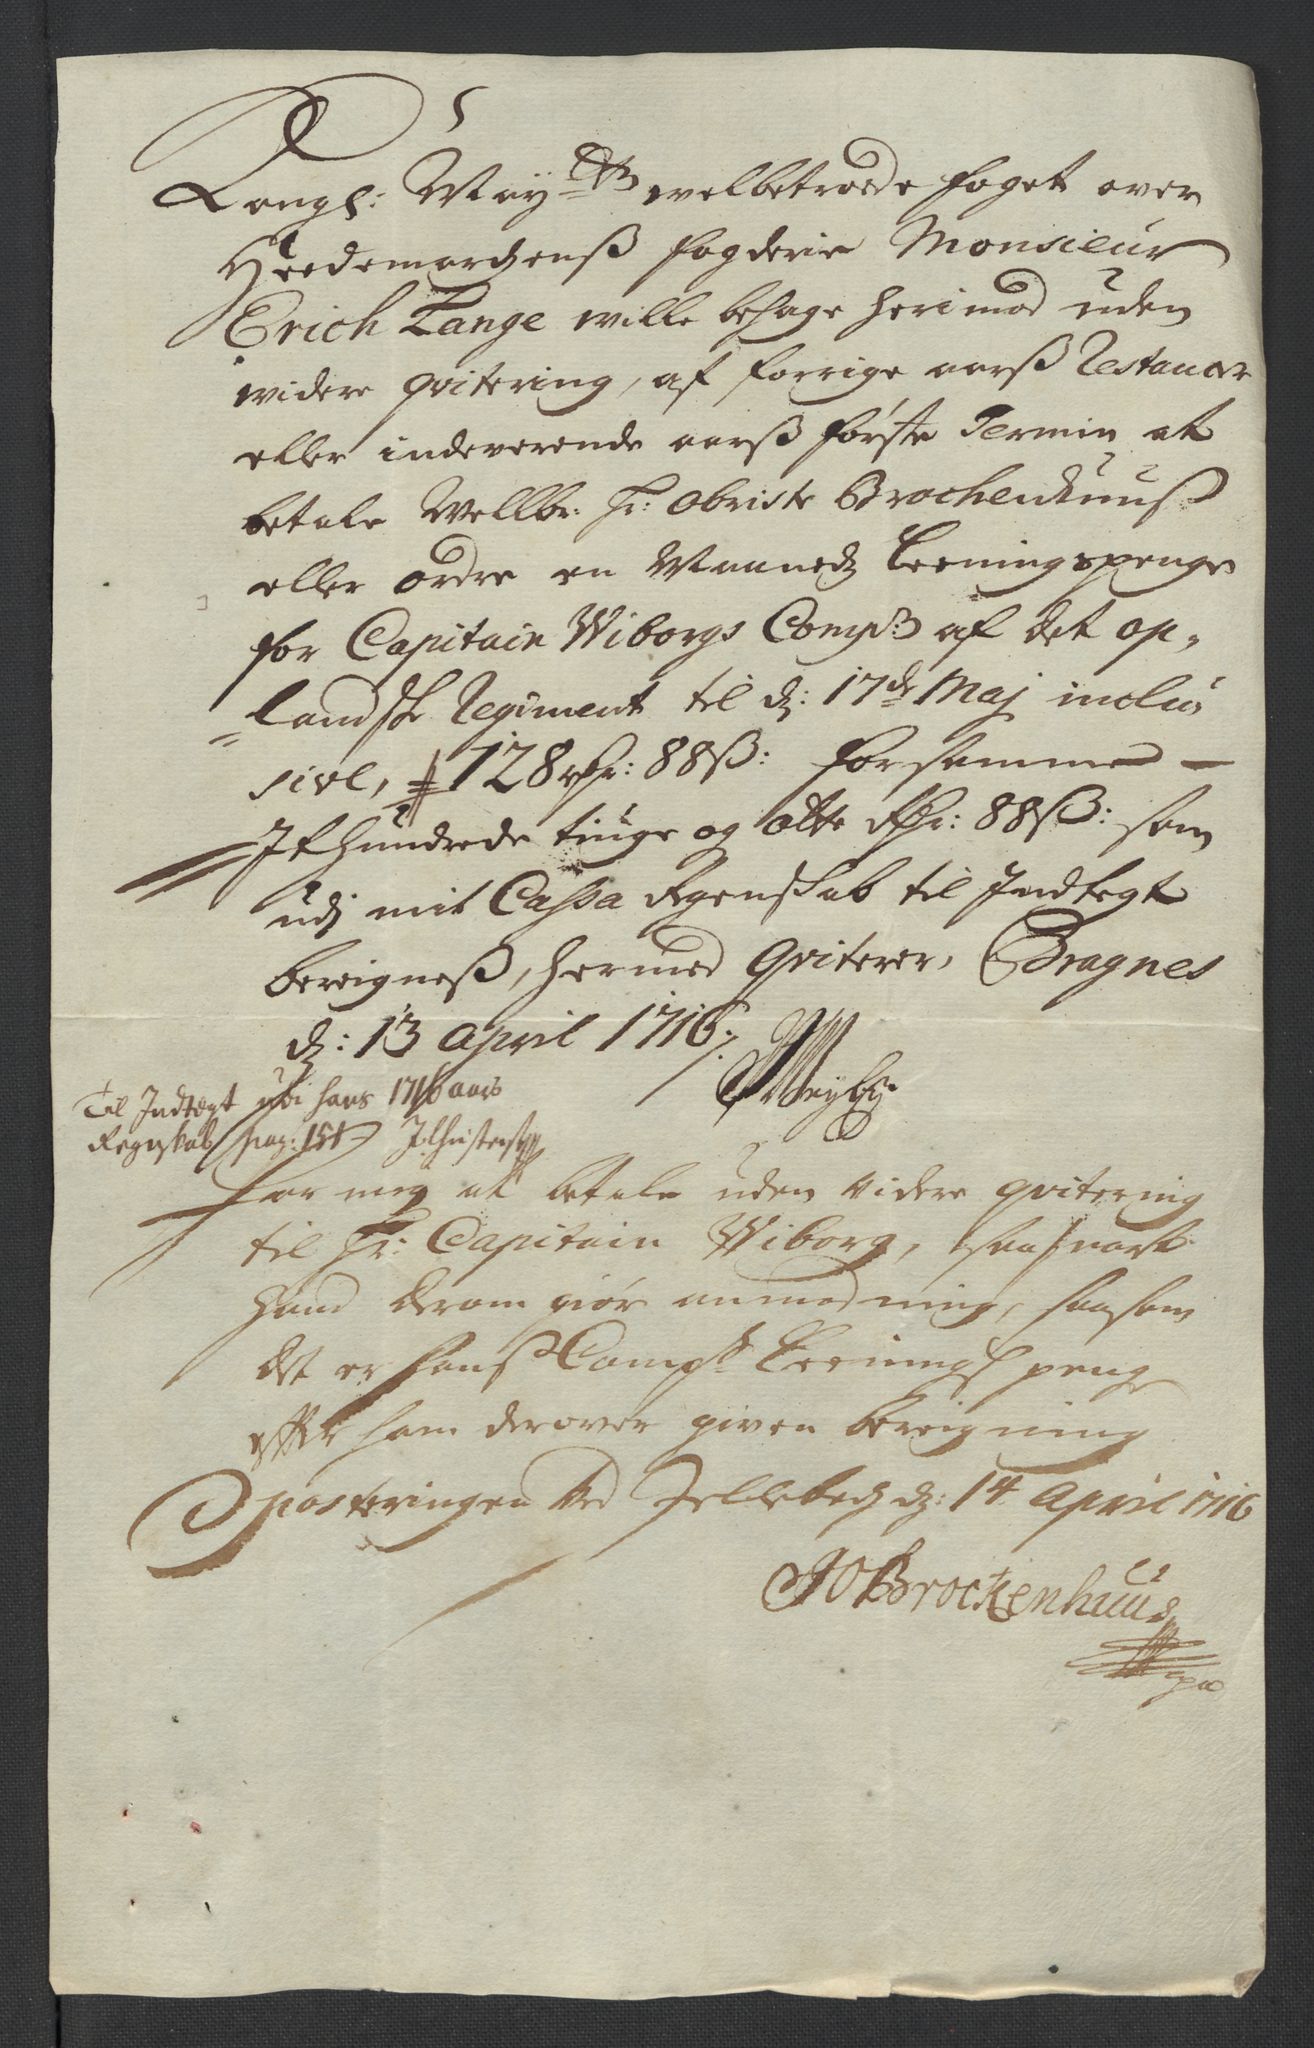 Kongl: May:ts welbetroede foget over
Heedemarchenß fogderie Monsieur
Erich Lange wille behage herimod uden
widere qvitering, af forrige aarß Restancer
eller indeverende aarß første Termin at
betale Wellbr: Hr: Obriste Brochenhuuß
eller ordre en Maaneds Leeningspenge
for Capitain Wiborgs Comp: af det op-
landske Regiment til d: 17de Maj inclu
sive, 128 rdr: 88ß: forsemmer
Jt hundrede tiuge og otte Rdr: 88ß: som
udj mit Cassa Regenskab til Jndtegt
bereigneß, hermed qviterer, Bragnes
d: 13 April 1716.
Til Jndtegt udi hans 1716 aars
Regnskab pag: 151
for mig at betale uden videre qvitering
til Hr: Capitain Wiborg, saasnart
hand derom giør anmodning, saasom
det er hans Comp: Leenings penge
efter ham derover given bereigning
posteringen ved Jellebech d: 14 April 1716
Brockenhuus